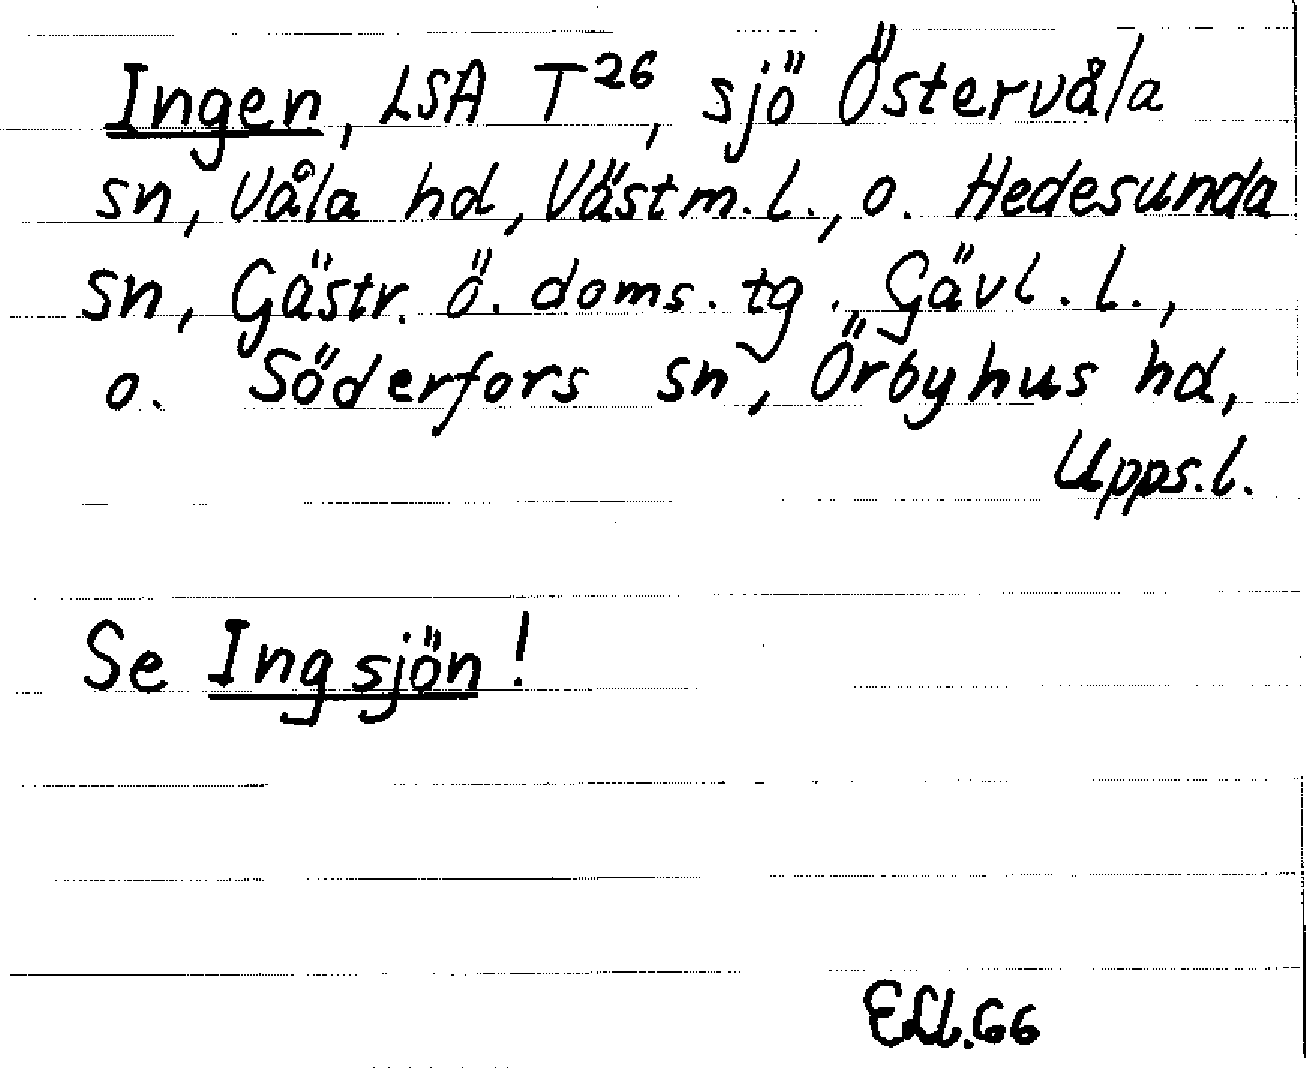 Ingen, LSA T²⁶, sjö Östervåla
sn, Våla hd, Västm. l., o. Hedesunda
sn, Gästr. ö. doms. tg. Gävl. l.,
o. Söderfors sn, Örbyhus hd,
Upps. l.
Se Ingsjön!
66